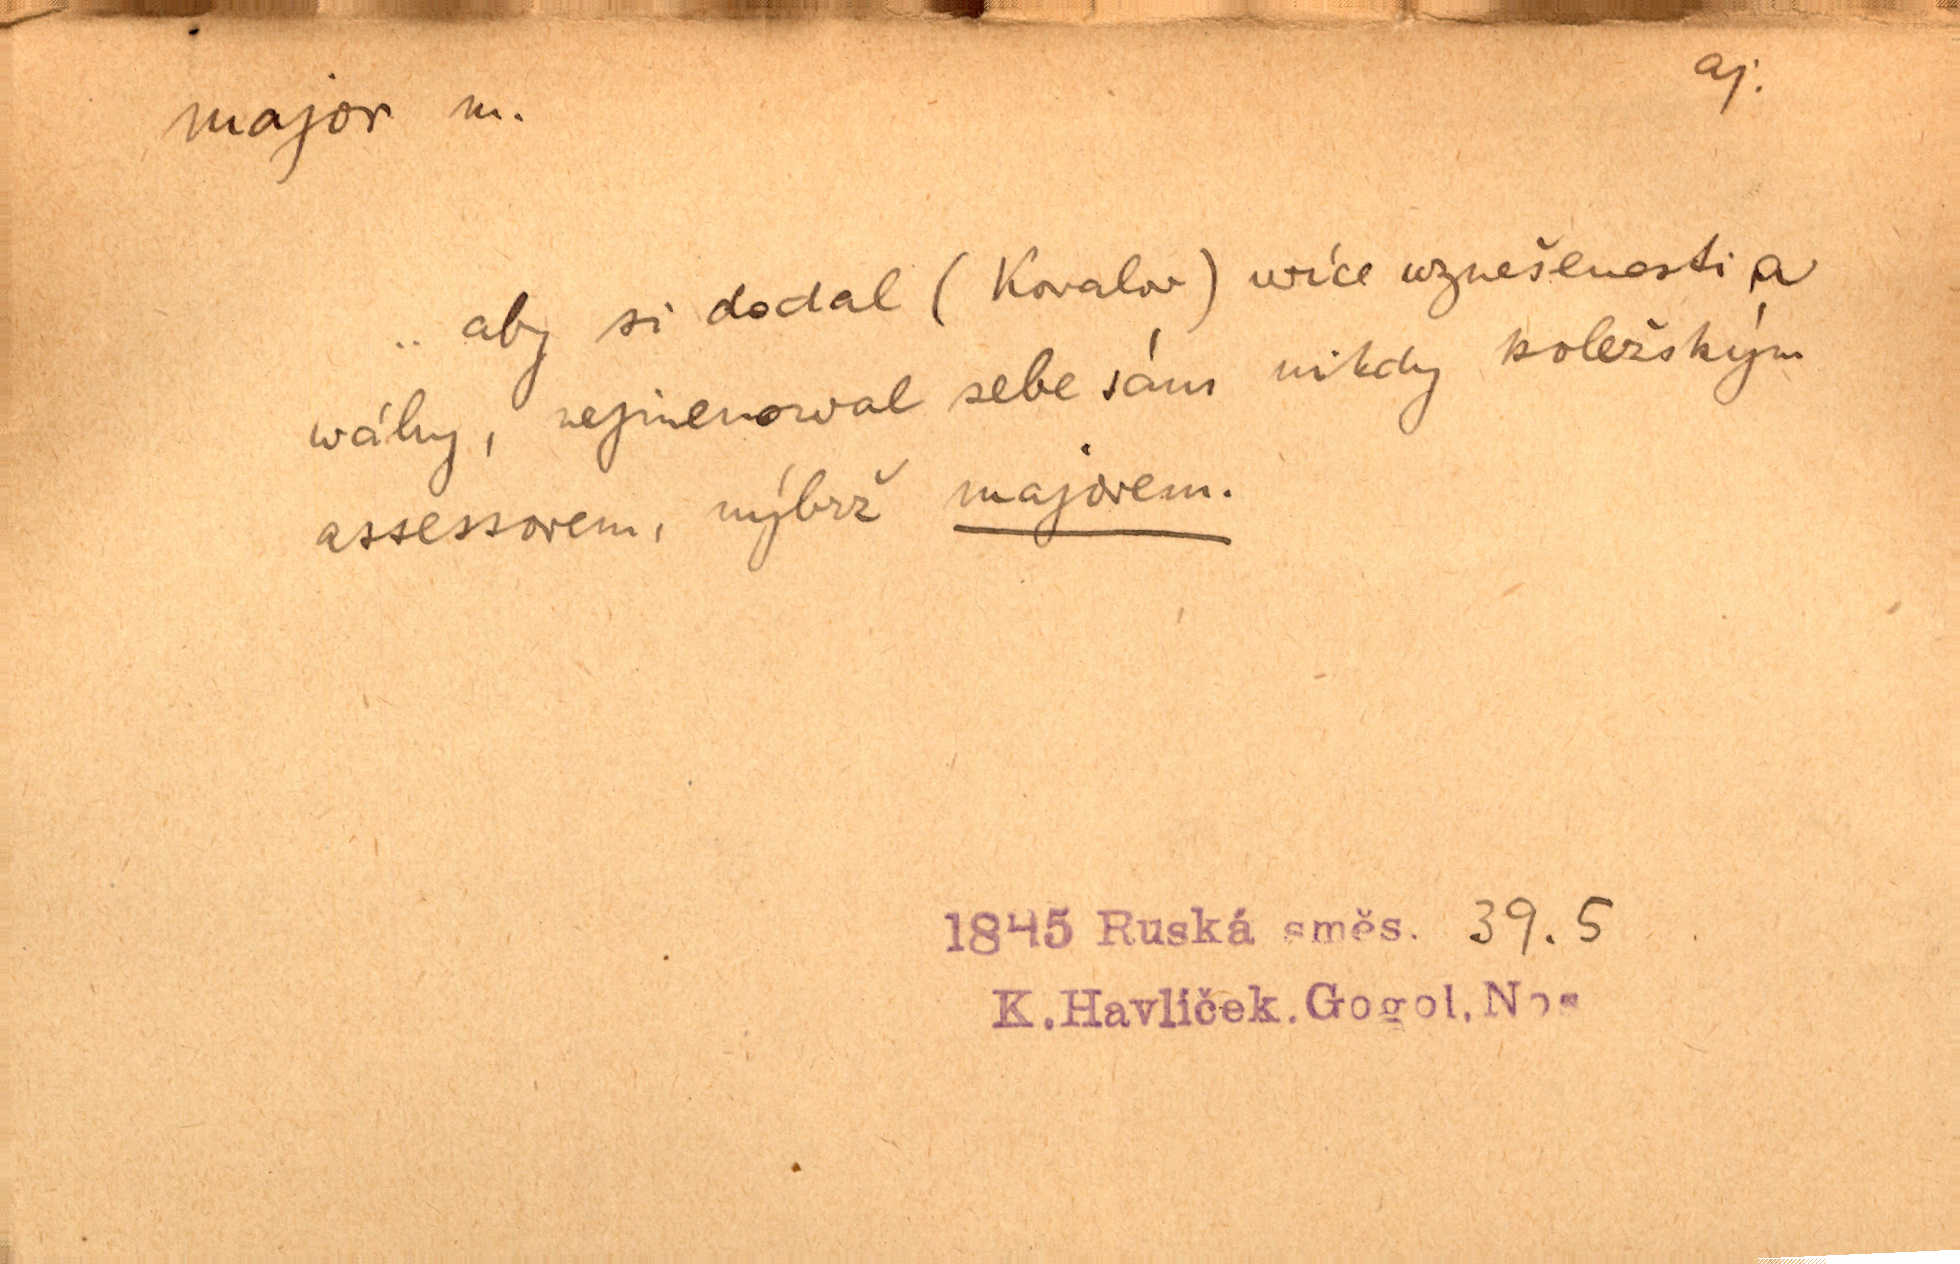 major m.
aj.
.. aby si dodal (Kovalow) wíce wznešenosti a
wáhy, nejmenowal sebe sám nikdy koležským
assessorem, nýbrž majorem.
1845 Ruská směs. 39.5
K.Havlíček.Gogol,Nos